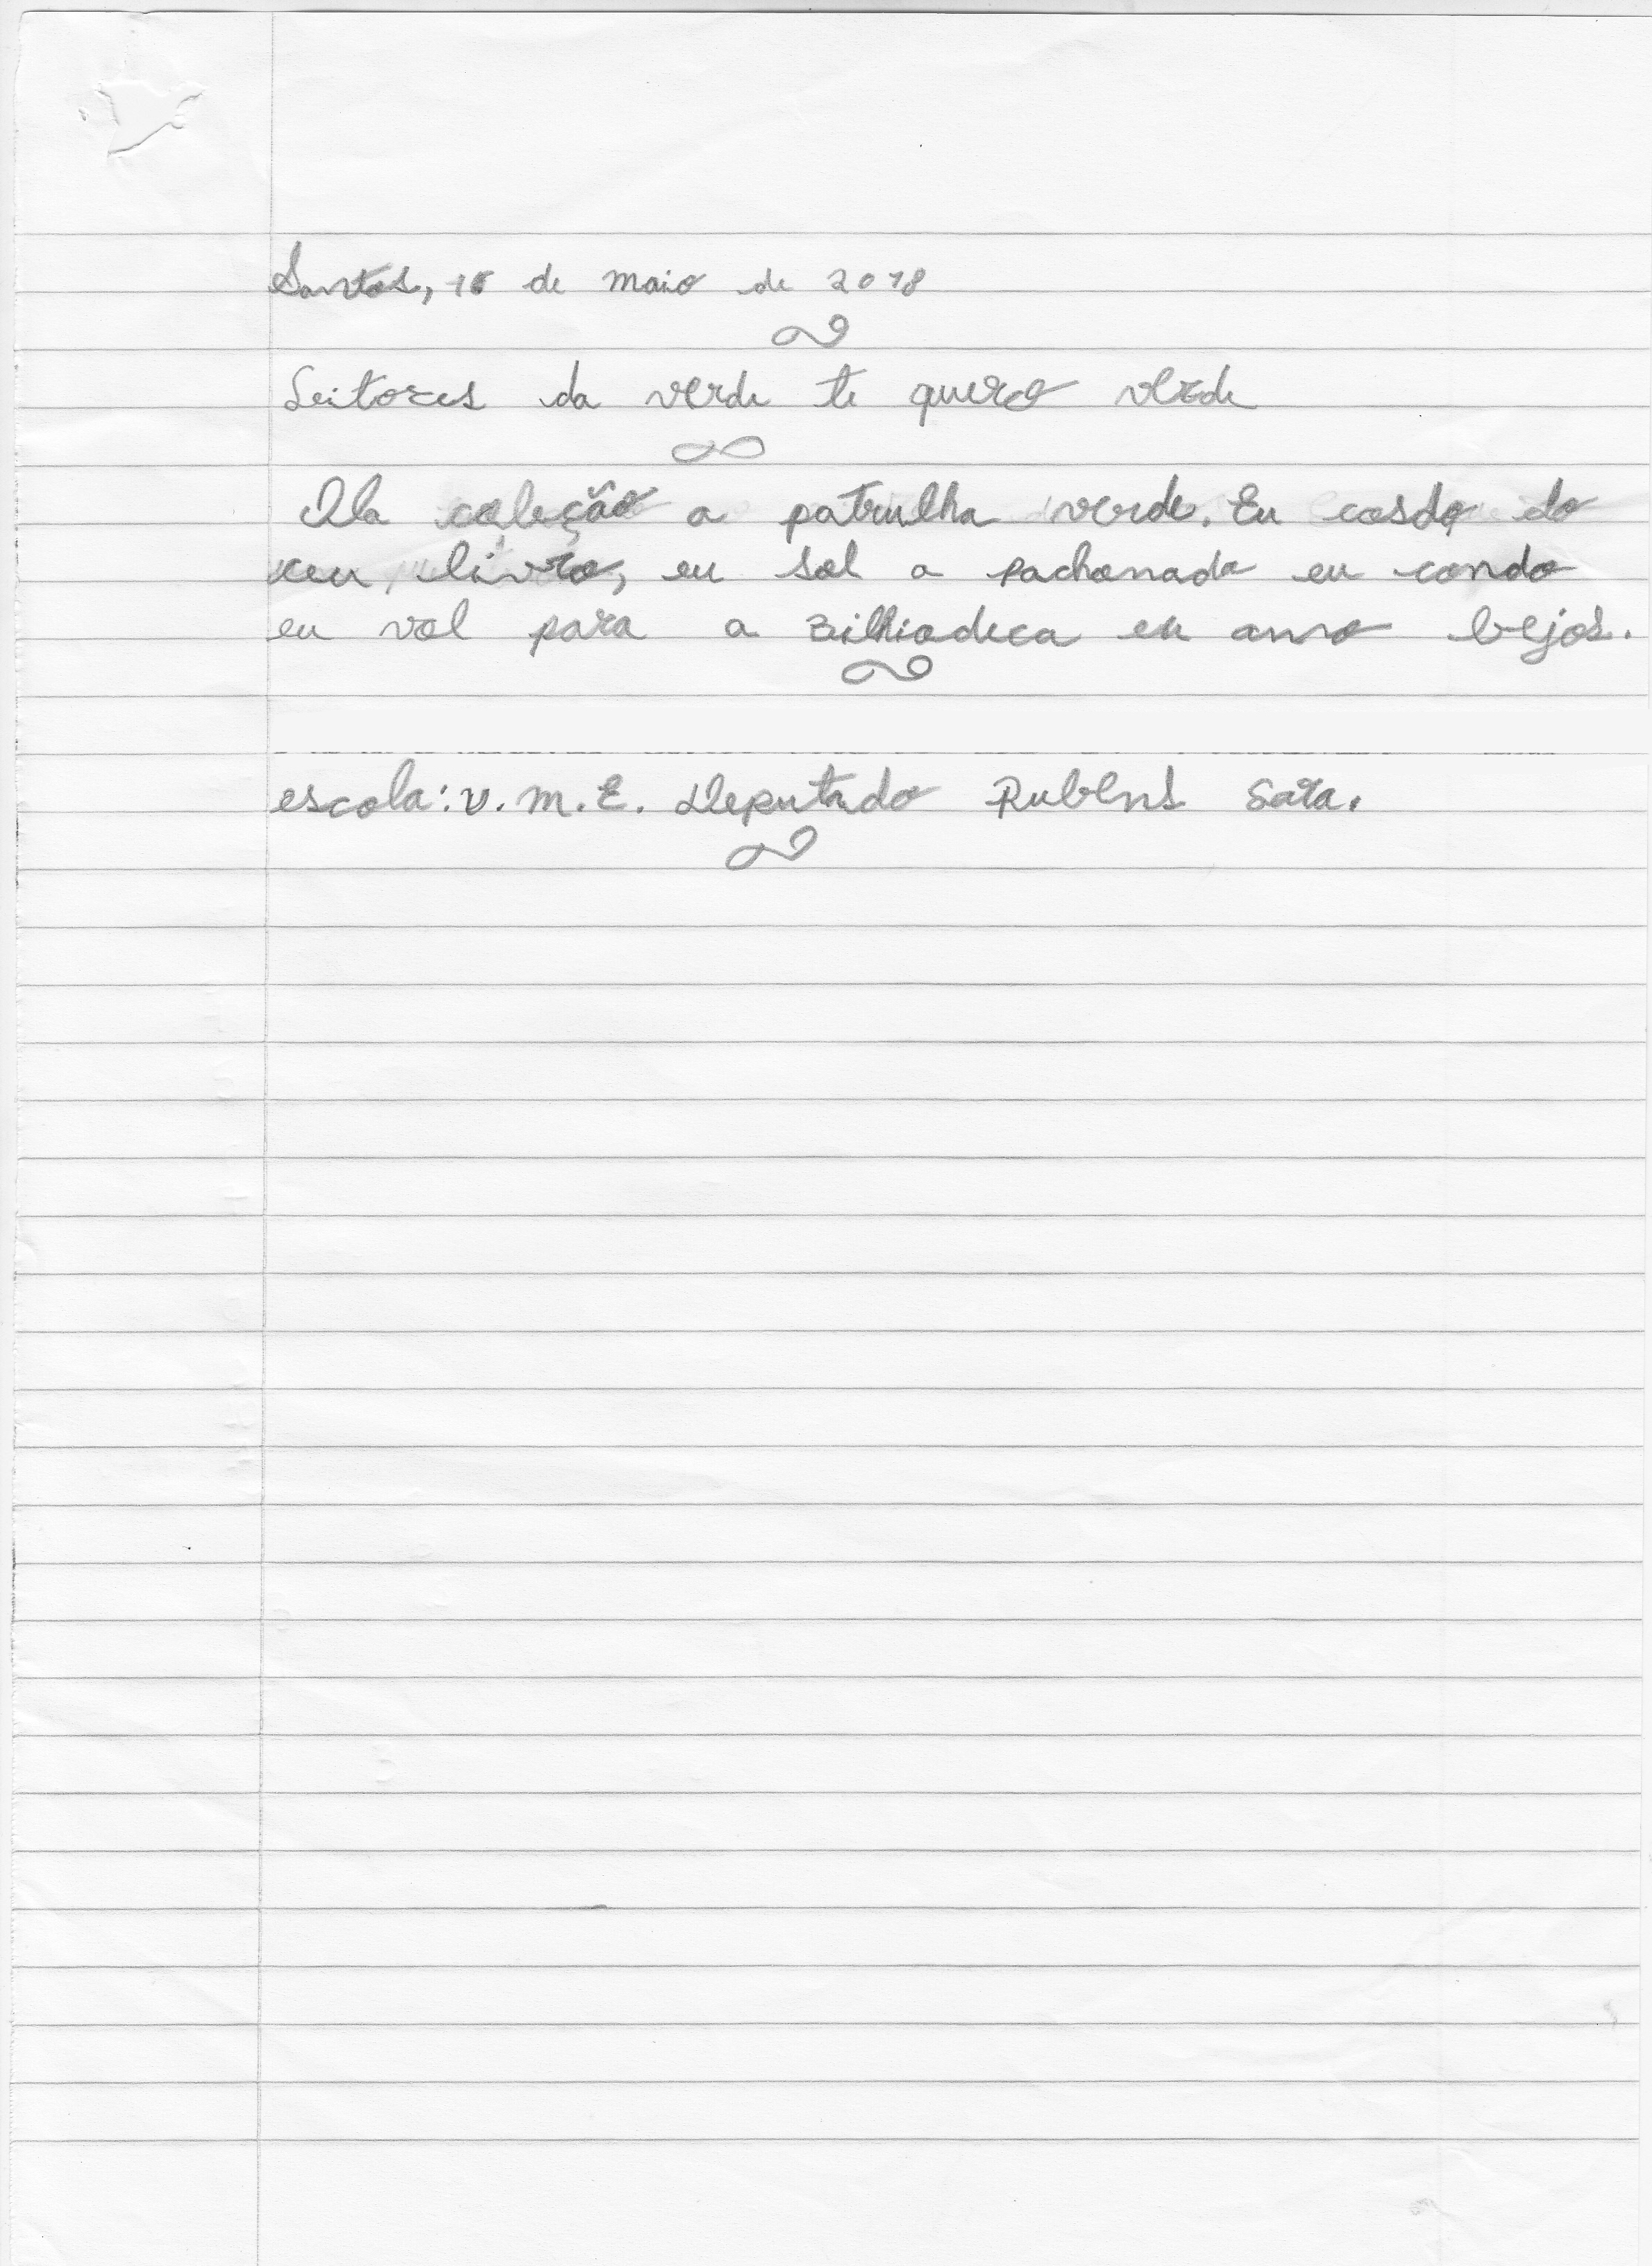 Santos, 18 de maio de 2018
Leitores da verde te quero verde
Ola coleção a patrulha verde. Eu cosdo do
seu livro, eu sol a pachonada eu condo
eu vol para a Bilhiodeca eu amo bejos.
escola: U. M. E. Deputado Rubens Sara.